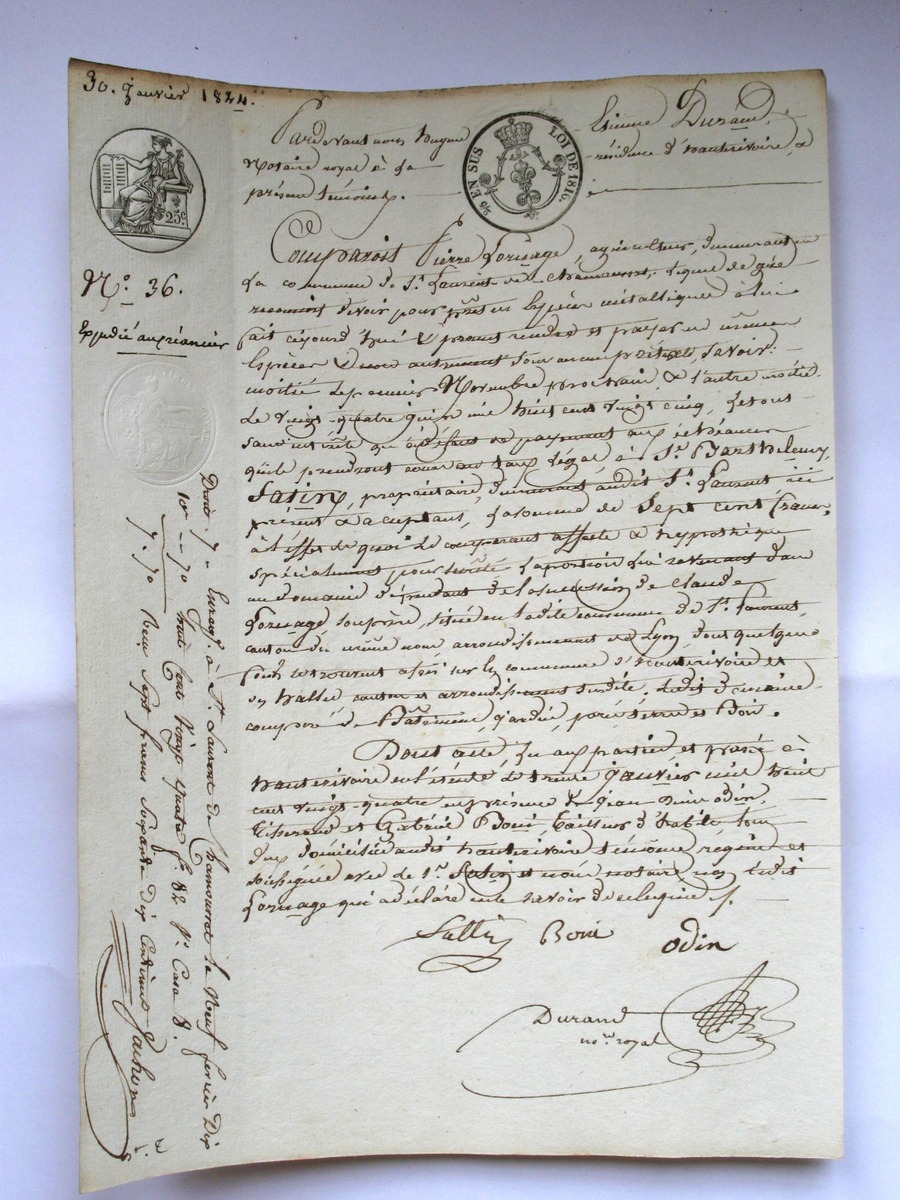 30. Janvier 1824.
25c.
EN SUS LOI DE 1816.
No. 36.
Expédié au créancier
Pardevant nous hugues Etienne Durand,
Notaire royal à la résidence d'hauterivoire, &
présens témoins.
Comparoit Pierre Lornage, agriculteur, demeurant en
la commune de St. Laurent de Chamousset, lequel de gré
reconnoit devoir pour prêt en espèces métalliques à lui
fait cejourd'hui & promet rendre et payer en mêmes
Espèces & non autrement sous aucun prétexte, Savoir:
moitié le premier Novembre prochain, & l'autre moitié
le vingt-quatre juin mil huit cent vingt cinq, le tout
sans intérêts qu'à défaut de payement aux échéances
qu'ils prendront cours au taux légal à Sr. Barthelemy
Satin, propriétaire, demeurant audit St. Laurent ici
présent & acceptant, la somme de Sept cent francs,
à l'effet de quoi le comparant affecte & hypothèque
spécialement pour sureté la portion lui revenant dans
un domaine dépendant de la succession de Claude
Lornage, son père, situé en ladite commune de St. Laurent,
canton du même nom arrondissement de Lyon, dont quelques
fonds se trouvent assis sur les communes d'hauterivoire et
les halles, canton et arrondissement susdits, ledit domaine
composé de Bâtimens, jardin, prés, terres et Bois.
Dont acte, lu aux parties et passé à
hauterivoire en l'étude le trente janvier mil huit
cent vingt-quatre en présence de jean Odin,
tisserand et Gabriel Boni, tailleur d'habits, tous
deux domiciliés audit hauterivoire témoins requis et
soussignés avec le Sr. Satin et nous notaire non ledit
Lornage qui a déclaré ne le savoir de ce enquis ./.
Satin Boni odin
Durand
nore. royal
Droits 7 "
10e -- 70
7. 70
Enregé. à St. Laurent de Chamousset le Neuf février Dix
huit cents vingt quatre fo. 82 Vo. Case 8.
Reçu sept francs soixante dix Centimes